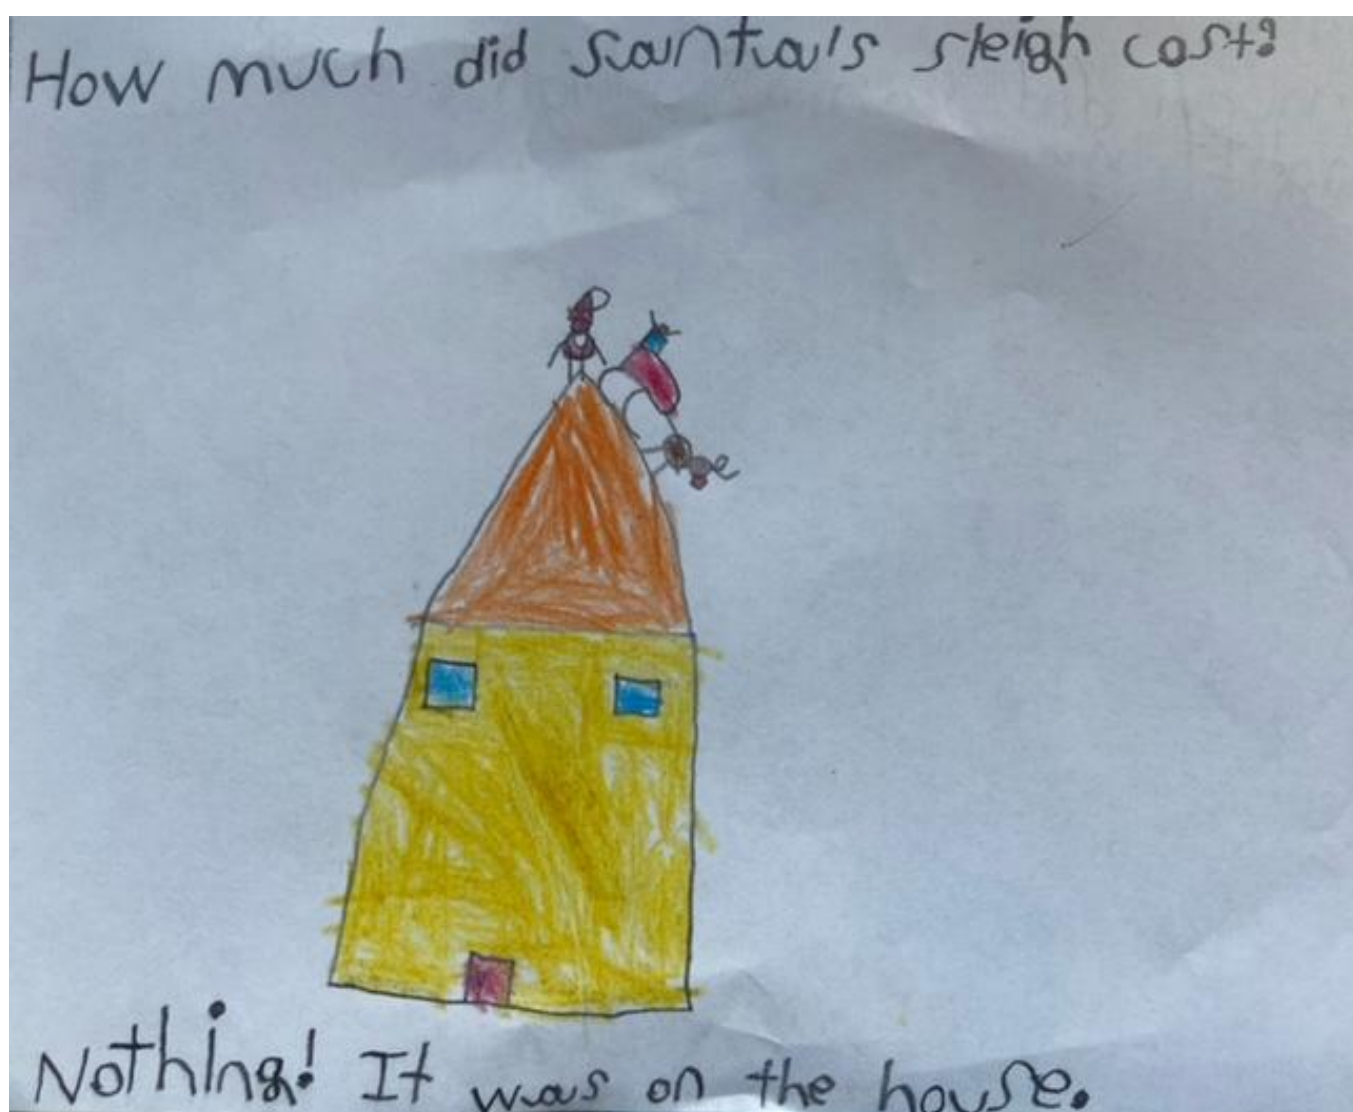 How much did Santa's sleigh cost?
Nothing! It was on the house.